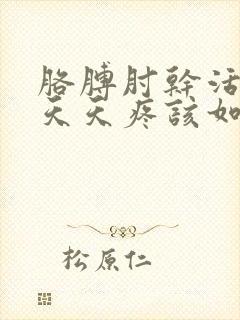 胳膊肘幹活
天天疼該如
松原仁